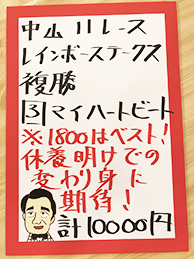 中山11レース
レインボーステークス
複勝
3マイハートビート
※1800はベスト!
休養明けでの
変わり身に
期待!
計10000円